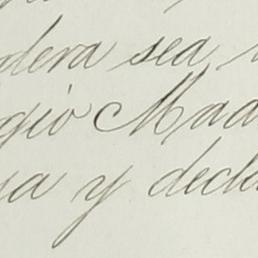 dera sea
gio Mad
sa y decla